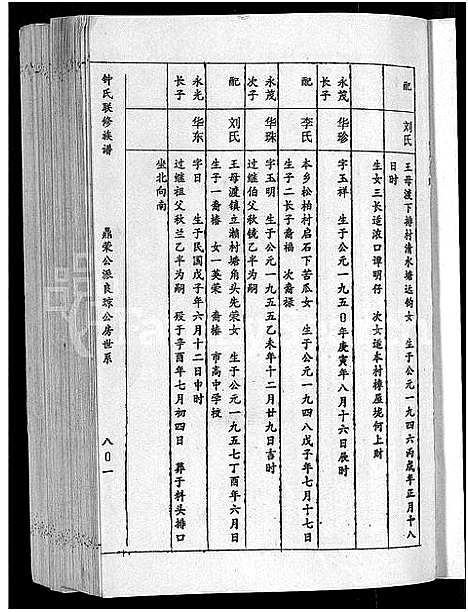 配 刘氏 王母渡下排村清水塘远钧女 生于公元一九四六丙戌年正月十八
日时
生女三长适浓口谭明仔 次女适本村樟屋垅何上财
永茂长子 华珍 字玉祥 生于公元一九五〇年庚寅年八月十六日辰时
配 李氏 本乡松柏村启石下苦瓜女 生于公元一九四八戊子年七月十七日
生子二长子裔禧 次裔禄
永茂次子 华珠 字玉明 生于公元一九五五乙未年十二月廿九日吉时
过继伯父秋镜乙半为嗣
配 刘氏 王母渡镇立濑村塘角头先荣女 生于公元一九五七丁酉年六月日
生子一裔椿 女一英荣 裔椿 市高中学校
永光长子 华东 字日 生于民国戊子年六月十二日申时
过继祖父秋兰乙半为嗣 殁于辛酉年七月初四日 葬于料头排口
坐北向南
钟氏联修族谱 鼎荣公派良琼公房世系 八〇一